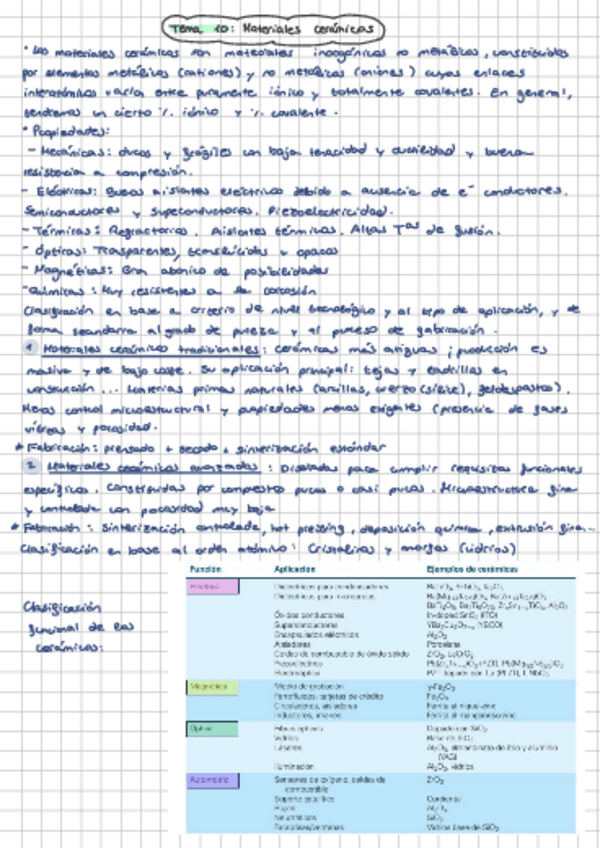 Tema 10: Materiales cerámicos
* Los materiales cerámicos son materiales inorgánicos no metálicos, constituidos
por elementos metálicos (cationes) y no metálicos (aniones) cuyos enlaces
interatómicos varían entre puramente iónico y totalmente covalentes. En general,
tendremos un cierto % iónico y % covalente.
* Propiedades:
- Mecánicas: duros y frágiles con baja tenacidad y ductilidad y buena
resistencia a compresión.
- Eléctricas: Buenos aislantes eléctricos debido a ausencia de e⁻ conductores.
Semiconductores y superconductores. Piezoelectricidad.
- Térmicas: Refractarios. Aislantes térmicos. Altas Tas de fusión.
- Ópticas: Transparentes, translúcidos u opacos
- Magnéticas: Gran abanico de posibilidades
- Químicas: Muy resistentes a la corrosión
Clasificación en base a criterio de nivel tecnológico y al tipo de aplicación, y de
forma secundaria al grado de pureza y al proceso de fabricación.
1 Materiales cerámicos tradicionales: cerámicas más antiguas; producción es
masiva y de bajo coste. Su aplicación principal: tejas y ladrillos en
construcción... Materias primas naturales (arcillas, cuarzo (sílice), feldespastos).
Menos control microestructural y propiedades menos exigentes (presencia de fases
vítreas y porosidad.
* Fabricación: prensado + secado + sinterización estándar
2 Materiales cerámicos avanzados: Diseñados para cumplir requisitos funcionales
específicos. Constituidos por compuestos puros o casi puros. Microestructura fina
y controlada con porosidad muy baja
* Fabricación: Sinterización controlada, hot pressing, deposición química, extrusión fina...
Clasificación en base al orden atómico: Cristalinos y amorfos (vidrios)
Clasificación
funcional de las
cerámicas:
Función Aplicación Ejemplos de cerámicas
Eléctrica Dieléctricos para condensadores
Dieléctricos para microondas
Óxidos conductores In-doped SnO₂ (ITO)
Superconductores (YBCO)
Encapsulados eléctricos Al₂O₃
Aisladores Porcelana
Celdas de combustible de óxido sólido ZrO₂
Piezoeléctricos
Electroóptica
Magnética Medio de grabación γ-Fe₂O₃
Ferrofluidos, tarjetas de crédito Fe₃O₄
Circuladores, aisladores Ferrita al níquel-zinc
Inductores, imanes Ferrita al manganeso-zinc
Óptica Fibras ópticas Dopado con SiO₂
Vidrios Base de SiO₂
Láseres Al₂O₃, aluminato de itrio y aluminio
(YAG)
Iluminación Al₂O₃, vidrios
Automotriz Sensores de oxígeno, celdas de ZrO₂
combustible
Soporte catalítico Cordierita
Bujías Al₂O₃
Neumáticos SiO₂
Parabrisas/ventanas Vidrios base de SiO₂